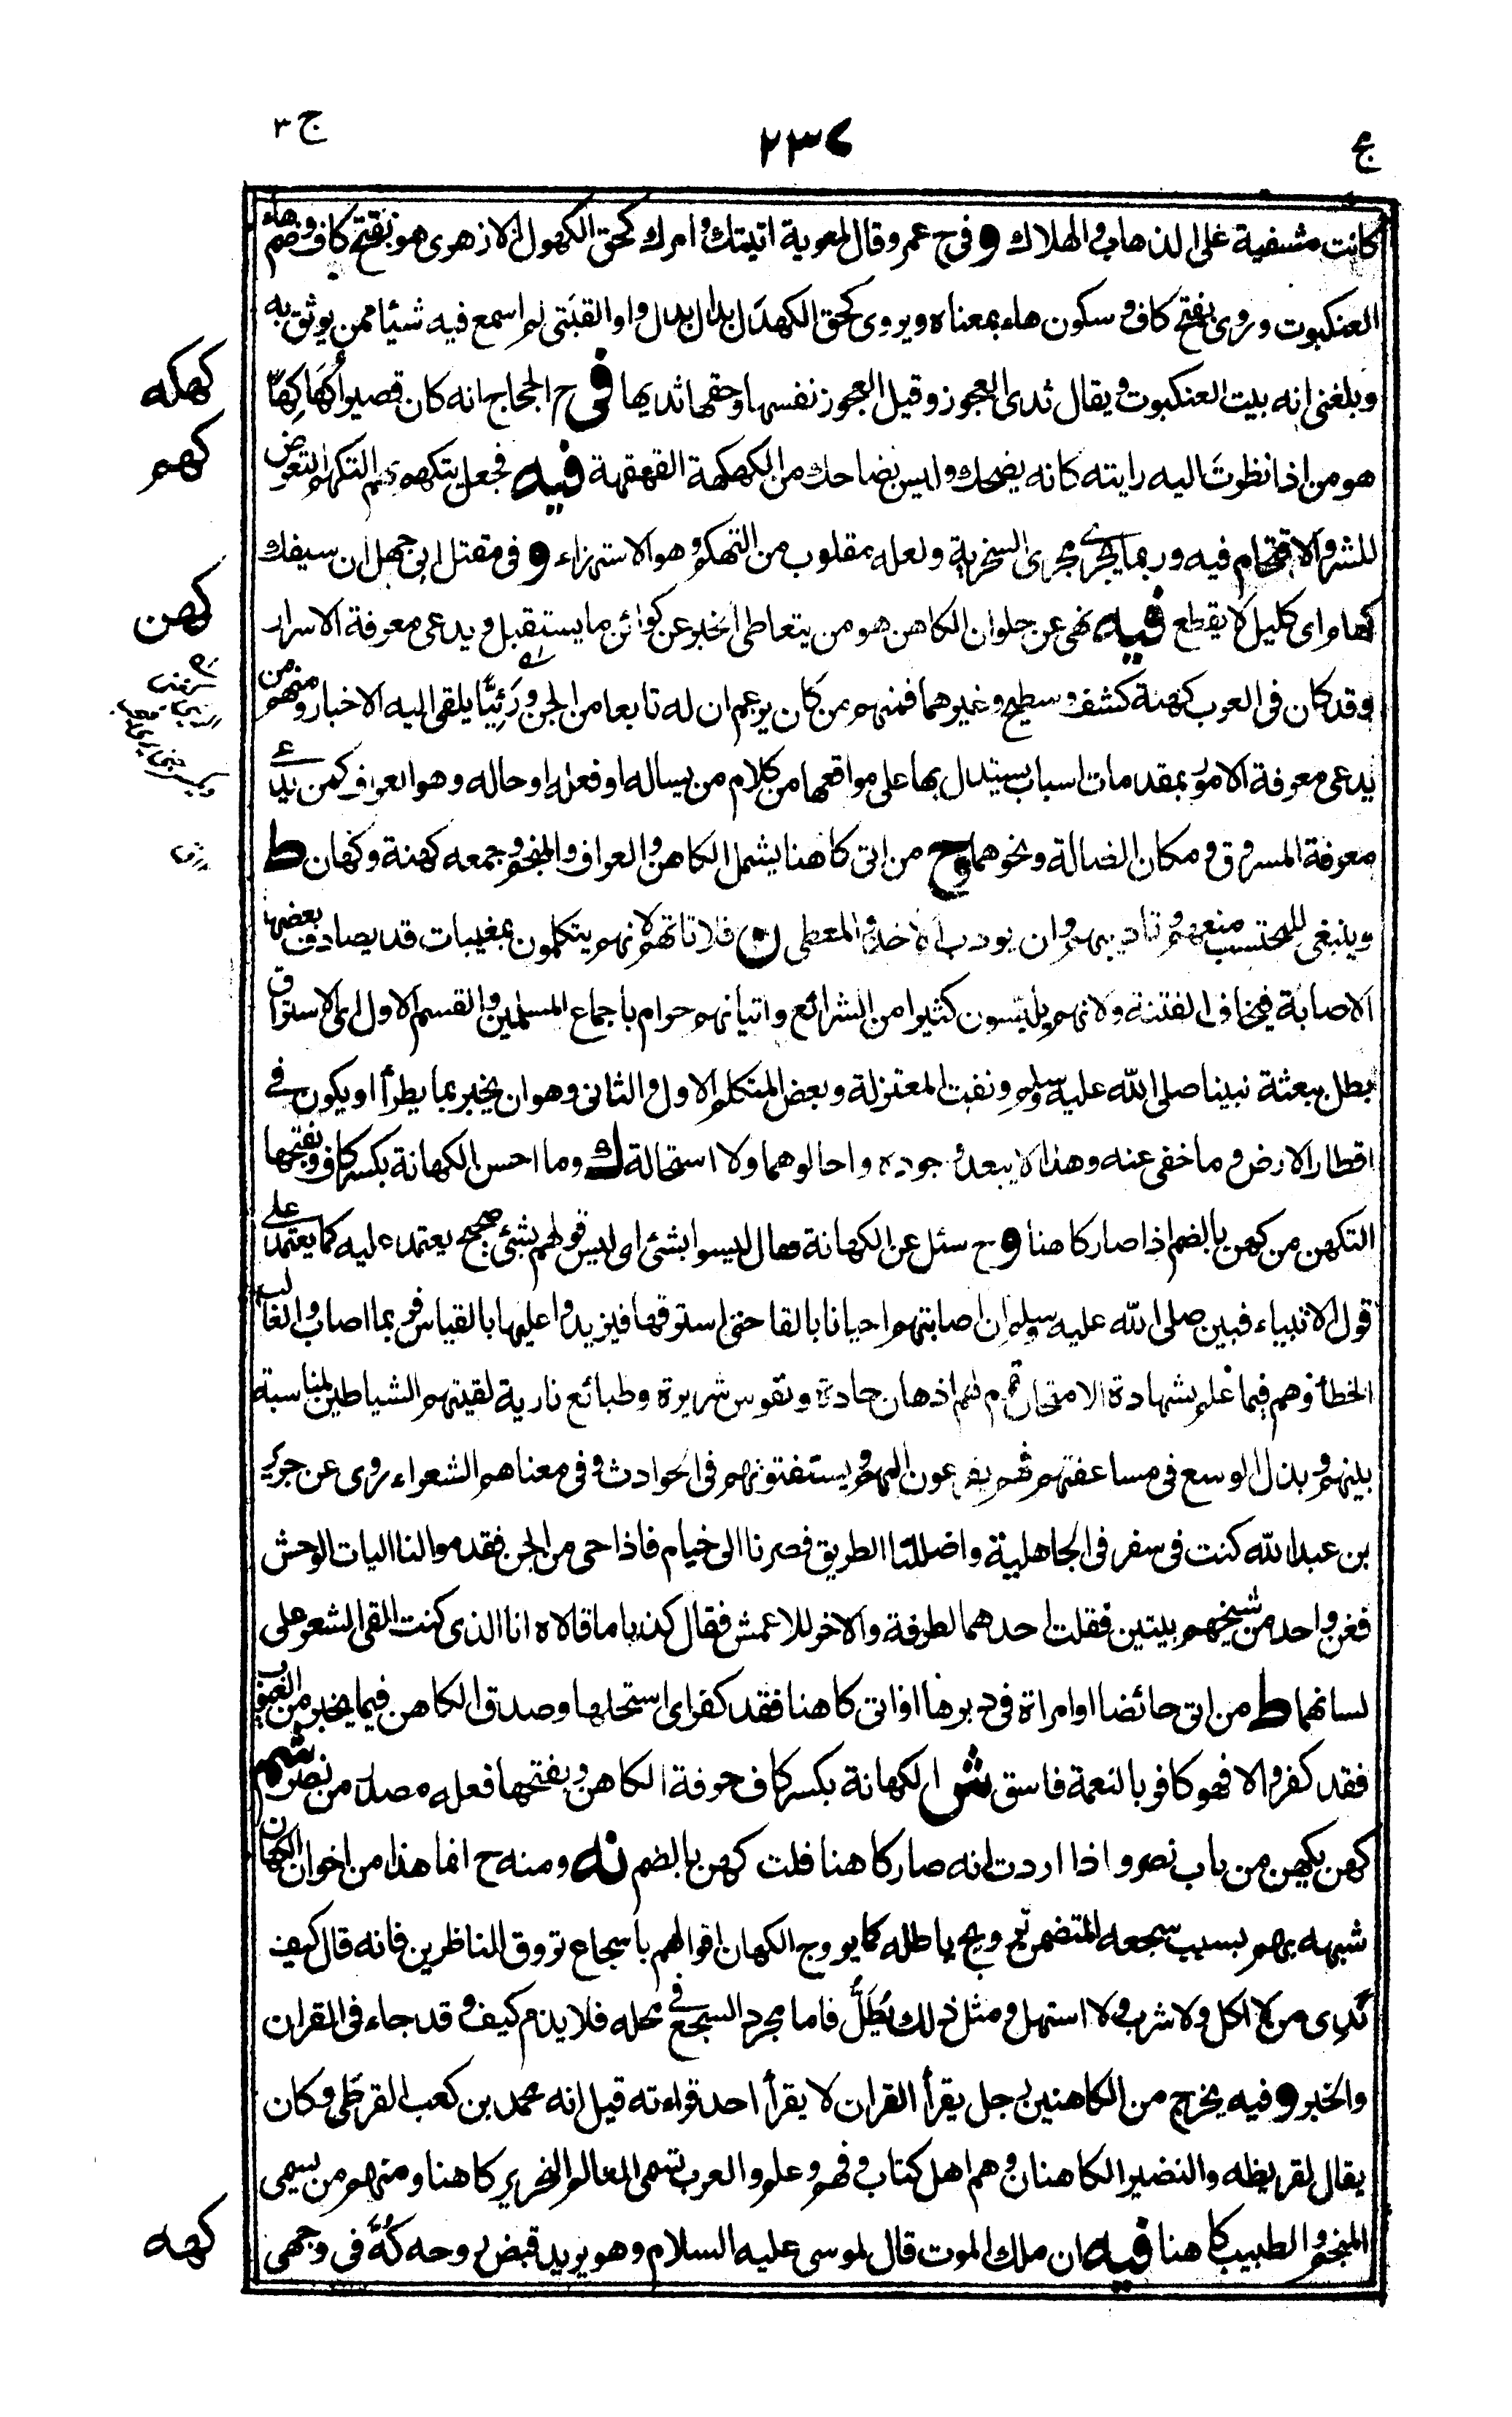 ج ٣
٢٣٧
كانت مشفية على الذهاب والهلاك و فى ح عمرو قال لمعوية اتيتك وامرك كحق الكهول الازهرى هو بفتح كاف وضم هاء
العنكبوت وروى بفتح كاف وسكون هاء بمعناه ويروى كحق الكهدل بدال بدل واو القتبى لم اسمع فيه شيئا ممن يوثق به
وبلغنى انه بيت العنكبوت ويقال ثدى العجوز وقيل العجوز نفسها وحقها ثديها فى ح الحجاج انه كان قصيرا كهاكها
كهكه
هو من اذا نظرت اليه رايته كانه يضحك وليس بضاحك من الكهكهة القهقهة فيه فجعل يتكهم بهم التكهم التعرض
كهم
للشر والاقتحام فيه وربما يجرى مجرى السخرية ولعله مقلوب من التهكم وهو الاستهزاء و فى مقتل ابى جهل ان سيفك
كهام اى كليل لا يقطع فيه نهى عن حلوان الكاهن هو من يتعاطى الخبر عن كوائن ما يستقبل ويدعى معرفة الاسرار
كهن
وقد كان فى العرب كهنة كشق وسطيح وغيرهما فمنهم من كان يزعم ان له تابعا من الجن ورئيا يلقى اليه الاخبار ومنهم من
يدعى معرفة الامور بمقدمات اسباب يستدل بها على مواقعها من كلام من يساله او فعله او حاله وهو العراف كمن يدعى
معرفة المسروق ومكان الضالة ونحوهما وح من اتى كاهنا يشمل الكاهن والعراف والمنجم وجمعه كهنة وكهان ط
وينبغى للمحتسب منعهم وتاديبهم وان يودب الاخذ والمعطى ن فلا تاتهم لانهم يتكلمون بمغيبات قد يصادف بعضها
الاصابة فيخاف الفتنة ولانهم يلبسون كثيرا من الشرائع واتيانهم حرام باجماع المسلمين والقسم الاول اى الاستراق
بطل ببعثة نبينا صلى الله عليه وسلم ونفت المعتزلة وبعض المتكلم الاول والثانى وهو ان يخبر بما يطرأ او يكون فى
اقطار الارض وما خفى عنه وهذا لا يبعد وجوده واحالوهما ولا استحالة ك وما احسن الكهانة بكسر كاف وبفتحها
التكهن من كهن بالضم اذا صار كاهنا و ح سئل عن الكهانة فقال ليسوا بشئ اى ليس قولهم بشئ صحيح يعتمد عليه كما يعتمد على
قول الانبياء فبين صلى الله عليه وسلم ان اصابتهم احيانا بالقا حتى استرقها فيزيدوا عليها بالقياس فربما اصاب والغالب
الخطأ وهم فيما علم بشهادة الامتحان قوم لهم اذهان حادة ونفوس شريرة وطبائع نارية لقيتهم الشياطين لمناسبة
بينهم وبذل الوسع فى مساعفتهم فهم يفزعون اليهم ويستفتونهم فى الحوادث وفى معناهم الشعراء روى عن جرير
بن عبد الله كنت فى سفر فى الجاهلية واضللنا الطريق فصرنا الى خيام فاذا حى من الجن فقدموا لنا البات الوحش
فغن واحد من شيخهم بيتين فقلت احدهما لطرفة والاخر للاعمش فقال كذبا ما قالاه انا الذى كنت القى الشعر على
لسانهما ط من اتى حائضا او امراة فى دبرها او اتى كاهنا فقد كفر اى استحلها وصدق الكاهن فيما يخبر من الغيب
فقد كفر والا فهو كافر بالنعمة فاسق ش الكهانة بكسر كاف حرفة الكاهن وبفتحها فعله مصدر من نصر شم
كهن يكهن من باب نصر واذا اردت انه صار كاهنا قلت كهن بالضم نه ومنه ح انما هذا من اخوان الكهان
شبهه بهم بسبب سجعه المتضمن ترويج باطله كما يروج الكهان اقوالهم باسجاع تروق الناظرين فانه قال كيف
ندى من لا اكل ولا شرب ولا استهل ومثل ذلك يطل فاما مجرد السجع فى محله فلا يذم كيف وقد جاء فى القران
والخبر و فيه يخرج من الكاهنين رجل يقرأ القران لا يقرأ احد قراءته قيل انه محمد بن كعب القرظى وكان
يقال لقريظه والنضير الكاهنان وهم اهل كتاب وفهم وعلم والعرب تسمى العالم النحرير كاهنا ومنهم من يسمى
المنجم والطبيب كاهنا فيه ان ملك الموت قال لموسى عليه السلام وهو يريد قبض روحه كه فى وجهى
كهه